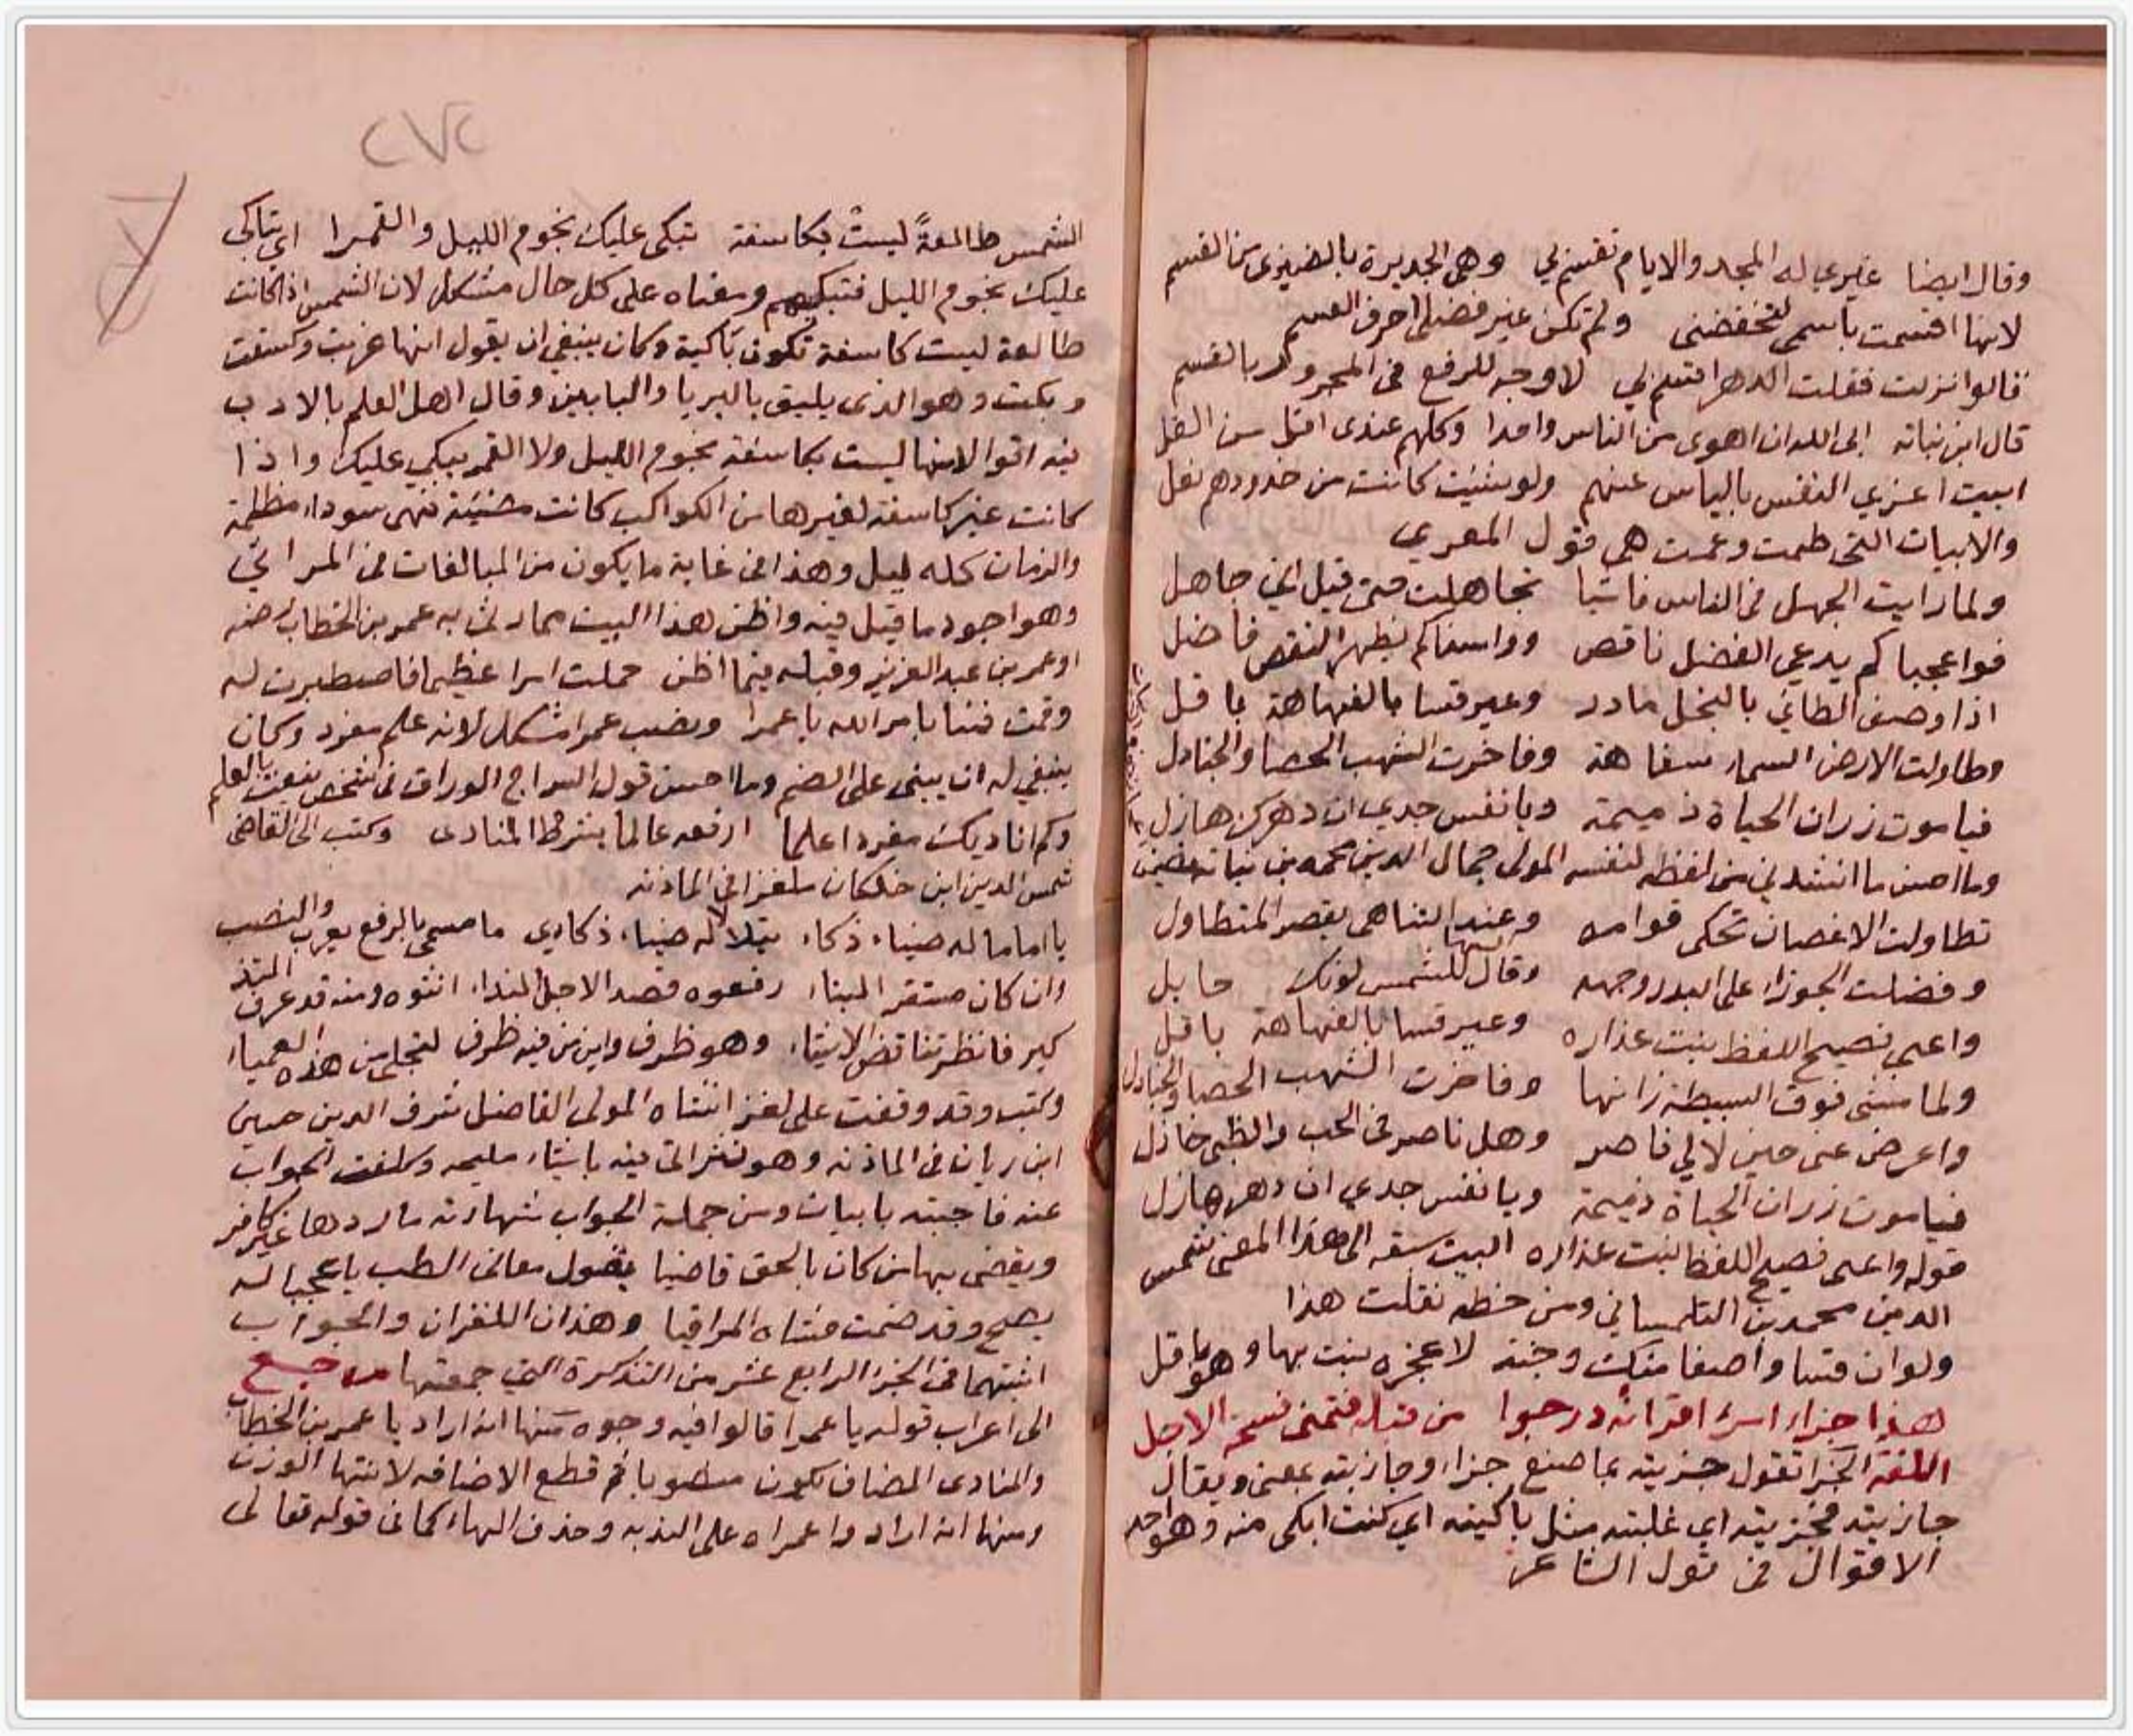 وقال ايضا غيري له المجد والايام تقسم لي وهي الجديرة بالضيزى من القسم
لانها اقسمت باسمي لتخفضني ولم تكن غير فضلي احرف القسم
قالوا نزلت فقلت الدهر اقسم لي لا وجه للرفع في المجرور بالقسم
قال ابن نباته الى الله ان اهوى من الناس واحدا وكلهم عندى اقل من القل
ابيت اعزي النفس بالياس عنهم ولو شئيت كانت من خدودهم نعل
والابيات التي طمت وعمت هي قول المعري
ولما رايت الجهل في الناس فاشيا تجاهلت حتى قيل اني جاهل
فواعجبا كم يدعي الفضل ناقص وواسفاكم يظهر النقص فاضل
اذا وصف الطائي بالبخل مادر وعير قسا بالفهاهة باقل
وطاولت الارض السماء سفاهة وفاخرت الشهب الحصا والجنادل
فيا موت زر ان الحياة ذميمة ويا نفس جدي ان دهرك هازل
وما احسن ما انشدني من لفظه لنفسه المولى جمال الدين محمد بن نباته
تطاولت الاغصان تحكي قوامه وعند التناهي يقصر المتطاول
وفضلت الجوزا على البدر وجهه وقال السها للشمس لونك حايل
واعيى فصيح اللفظ بنبت عذاره وعير قسا بالفهاهة باقل
ولما مشى فوق البسيطة زانها وفاخرت الشهب الحصا والجنادل
واعرض عني حين لا لي ناصر وهل ناصر في الحب والظبي خاذل
فيا موت زر ان الحياة ذميمة ويا نفس جدي ان دهرك هازل
قوله واعيى فصيح اللفظ بنبت عذاره البيت سبقه الى هذا المعنى شمس
الدين محمد بن التلمساني ومن خطه نقلت هذا
ولو ان قسا واصفا منك وجنة لاعجزه نبت بها وهو باقل
هذا جزاء امرء اقرانه درجوا من قبله فتمنى فسحة الاجل
اللغة الجزا تقول جزيته بما صنع جزاء وجازيته بمعنى ويقال
جازيته فجزيته اي غلبته مثل باكيته اي كنت ابكى منه وهو احد
الاقوال في قول الشاعر
٢٧٢
الشمس طالعةً ليستْ بكاسفة تبكي عليك نجوم الليل والقمرا اي تباكي
عليك نجوم الليل فتبكيهم ومعناه على كل حال مشكل لان الشمس اذا كانت
طالعة ليست كاسفة تكون باكية وكان ينبغي ان يقول انها غربت وكسفت
وبكت وهو الذي يليق بالبريا والبابين وقال اهل العلم بالادب
فيه اقوالا انها ليست بكاسفة نجوم الليل ولا القمر يبكي عليك واذا
كانت غير كاسفة لغيرها من الكواكب كانت مضيئة فهي سوداء مظلمة
والزمان كله ليل وهذا في غاية ما يكون من المبالغات في المراثي
وهو اجود ما قيل فيه واظن هذا البيت مما رثي به عمر بن الخطاب رضه
او عمر بن عبد العزيز وقبله فيما اظن حملت امرا عظيما فاصطبرت له
وقمت فينا بامر الله يا عمرا ونصب عمرا مشكل لانه علم مفرد وكان
ينبغي له ان يبنى على الضم وما احسن قول السراج الوراق في شخص ينعت بالعلم
وكم اناديك مفردا علما ارفعه عالما بشرط المنادى وكتب الى القاضي
شمس الدين ابن خلكان ملغزا في الماذنه
يا اماما له ضياء ذكاء يتلالا له ضياء ذكاءي ما مسمى بالرفع يعرب والنصب
وان كان مستقر البناء رفعوه قصد الاجل النداء انثوه ومنه قد عرف التذ
كير فانظر تناقض الاشياء وهو ظرف واين من فيه ظرف لتجلي من هذه العمياء
وكتب وقد وقفت على لغز انشاه المولى الفاضل شرف الدين حسين
ابن ريان في الماذنه وهو نثر اتى فيه باشياء مليحه وكلفت الجواب
عنه فاجبته بابيات ومن جملة الجواب شهادته ما ردها غير كافر
ويقضي بها من كان بالحق قاضيا يقول معاني الطب يا عجبا له
يصح وقد ضمت حشاه المراقيا وهذان اللغزان والجواب
اثبتهما في الجزا الرابع عشر من التذكرة التي جمعتها رجع
الى اعراب قوله يا عمرا قالوا فيه وجوه منها انه اراد يا عمر بن الخطاب
والمنادى المضاف يكون منصوبا ثم قطع الاضافه لانتها الوزن
ومنها انه اراد وا عمراه على الندبه وحذف الهاء كما في قوله تعالى